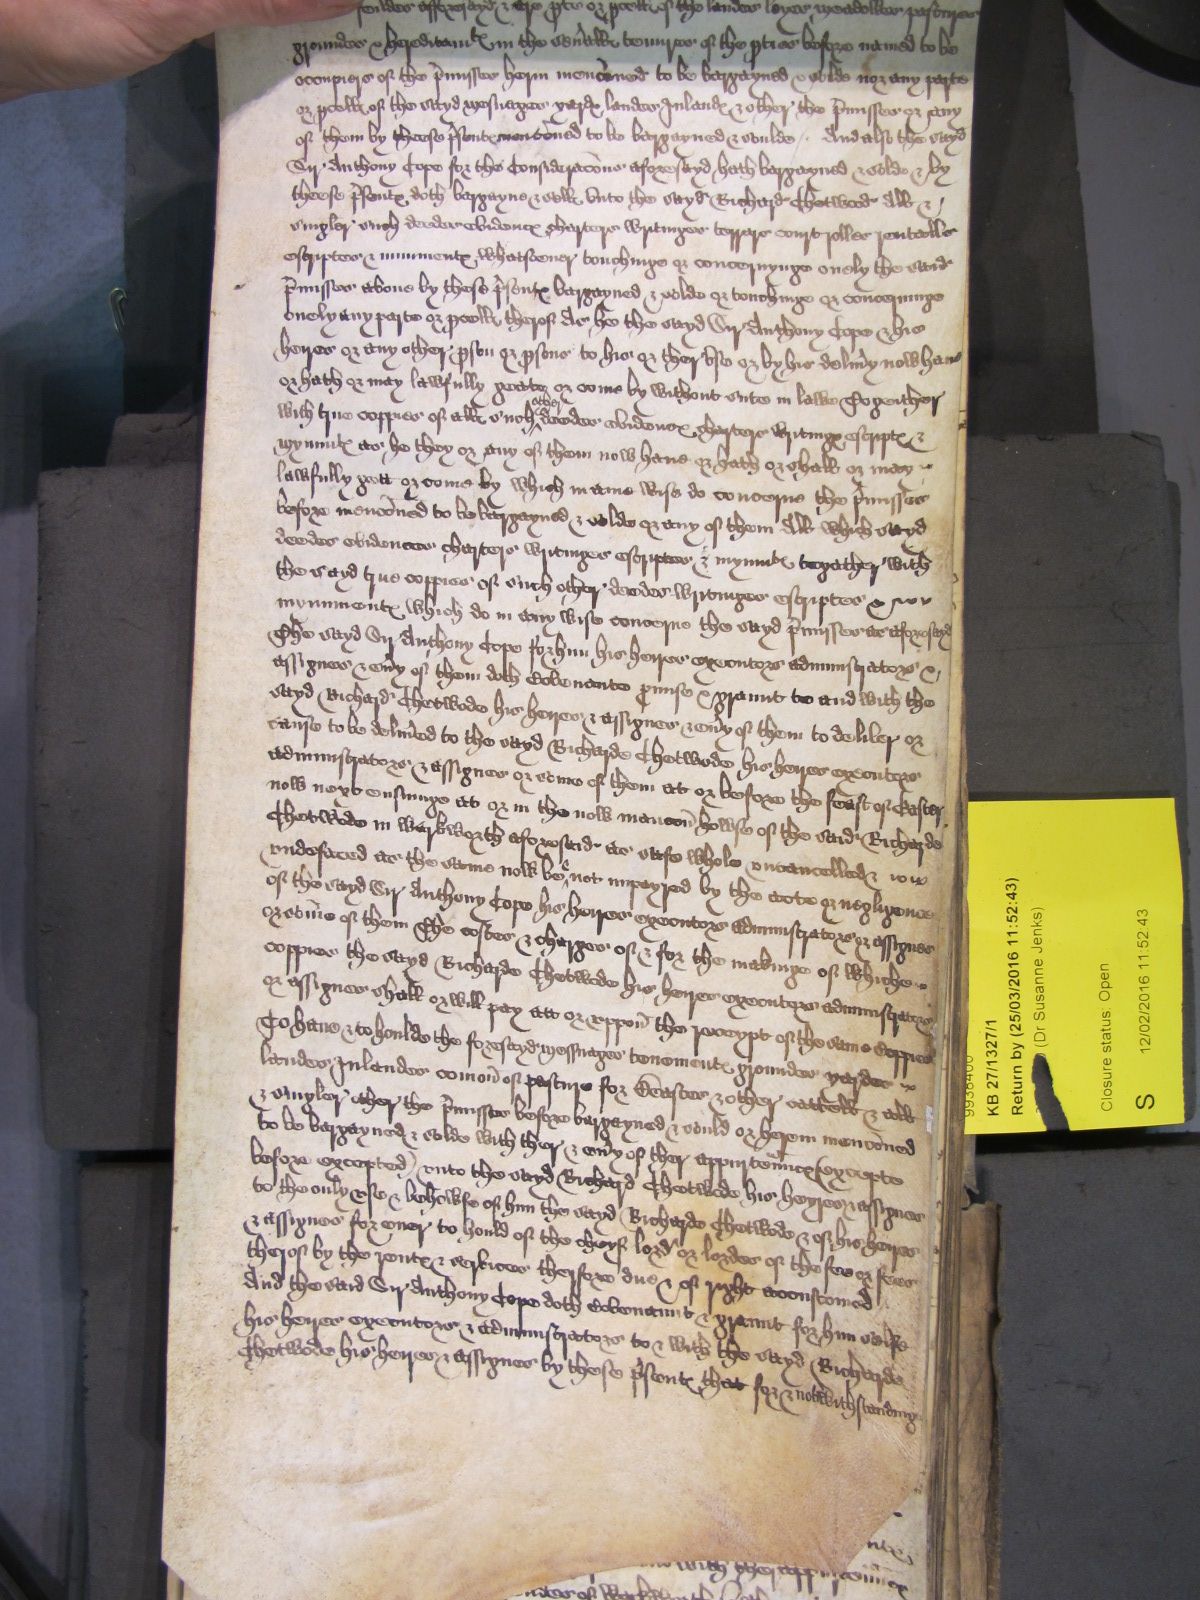 feildes afforesayd & are pte or pcell of the landes layes meadowes pastures
groundes & hereditamtx in the sevall tenures of the pties before named to be
occupiers of the pmisses herin mencioned to be bargayned & solde nor any parte
or pcell of the sayd mesuages yards landes Inlandx & other the pmisses or any
of them by theese psentx mencioned to be bargayned & soulde . And also the sayd
Sir Anthony Cope for the Consideracions aforesayd hath bargayned & solde & by
theese psentx doth bargayne & sell unto the sayd Richard Chetwood All &
singler such deedes evidencx charters writinges terrars court rolles rentalls
escriptes & munimentx whatsoever touchinge or concernynge onely the said
pmisses above by these psentx bargayned & solde or touchinge or concerninge
onely any parte or pcell therof As he the sayd Sir Anthony Cope & his
heires or any other pson or psons to his or ther use or by his delivy now have
or hath or may lawfully geate or come by without suite in lawe Togeather
with true coppies of all such other deedes evidencx charters writingx escriptx &
mynimtx as he they or any of them now have or hath or shall or may
lawfully gett or come by which in anie wise do concerne the pmisses
before mencioned to be bargayned & solde or any of them All which sayd
deedes evidences charters writinges escriptes & mynimtx togather with
the sayd true coppies of such other deedes writinges escriptes &
mynimentx which do in any wise concerne the sayd pmisses as aforesayd
The sayd Sir Anthony Cope for him his heires executors administrators &
assignes & evy of them doth Covenante pmise & graunt to and with the
sayd Richard Chetwode his heires & assignes & evy of them to deliver or
cause to be delived to the sayd Richarde Chetwode his heires executors
administrators & assignes or some of them at or before the feast of Easter
now next ensuinge at or in the now mancion howse of the said Richarde
Chetwode in Warkworth aforesaid as safe whole uncancelled &
undefaced as the same now be & not impayred by the acte or negligence
of the sayd Sir Anthony Cope his heires executors administrators or assignes
or some of them The costes & charges of & for the makinge of whiche
coppies the sayd Richarde Chetwode his heires executors administrators
or assignes shall or will pay att or uppon the receypt of the same Coppies
To have & to houlde the foresayd messuages tenementx groundes yardes
landes Inlandes comon of pasture for Beastes & other cattell & all
& singler other the pmisses before bargayned & sould or herein mencioned
to be bargayned & solde with ther & evy of ther appurtenncx (excepte
before excepted) unto the sayd Richard Chetwode his heyres & assignes
to the only use & behowfe of him the sayd Richarde Chetwode & of his heires
& assignes for ever to hould of the cheyf lord or lordes of the fee or fees
therof by the rentx & services therfore due & of right accustomed
And the said Sir Anthony Cope doth Covenaunt & graunt for him selfe
his heires executors & administrators to & with the sayd Richarde
Chetwode his heires & assignes by these psentx that for & notwithstanding
with ther appurtenncx
KB 27/1327/1
Return by (25/03/2016 11:52:43)
(Dr Susanne Jenks)
Closure status: Open
S 12/02/2016 11:52:43